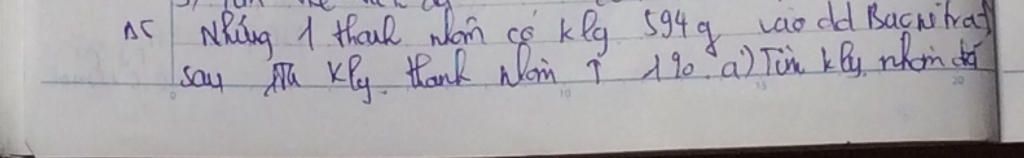 Nhúng 1 thanh nhôm có klg 594g vào dd Bạc nitrat
say klg thanh nhôm ↑ 1% a) Tìm klg nhôm đã